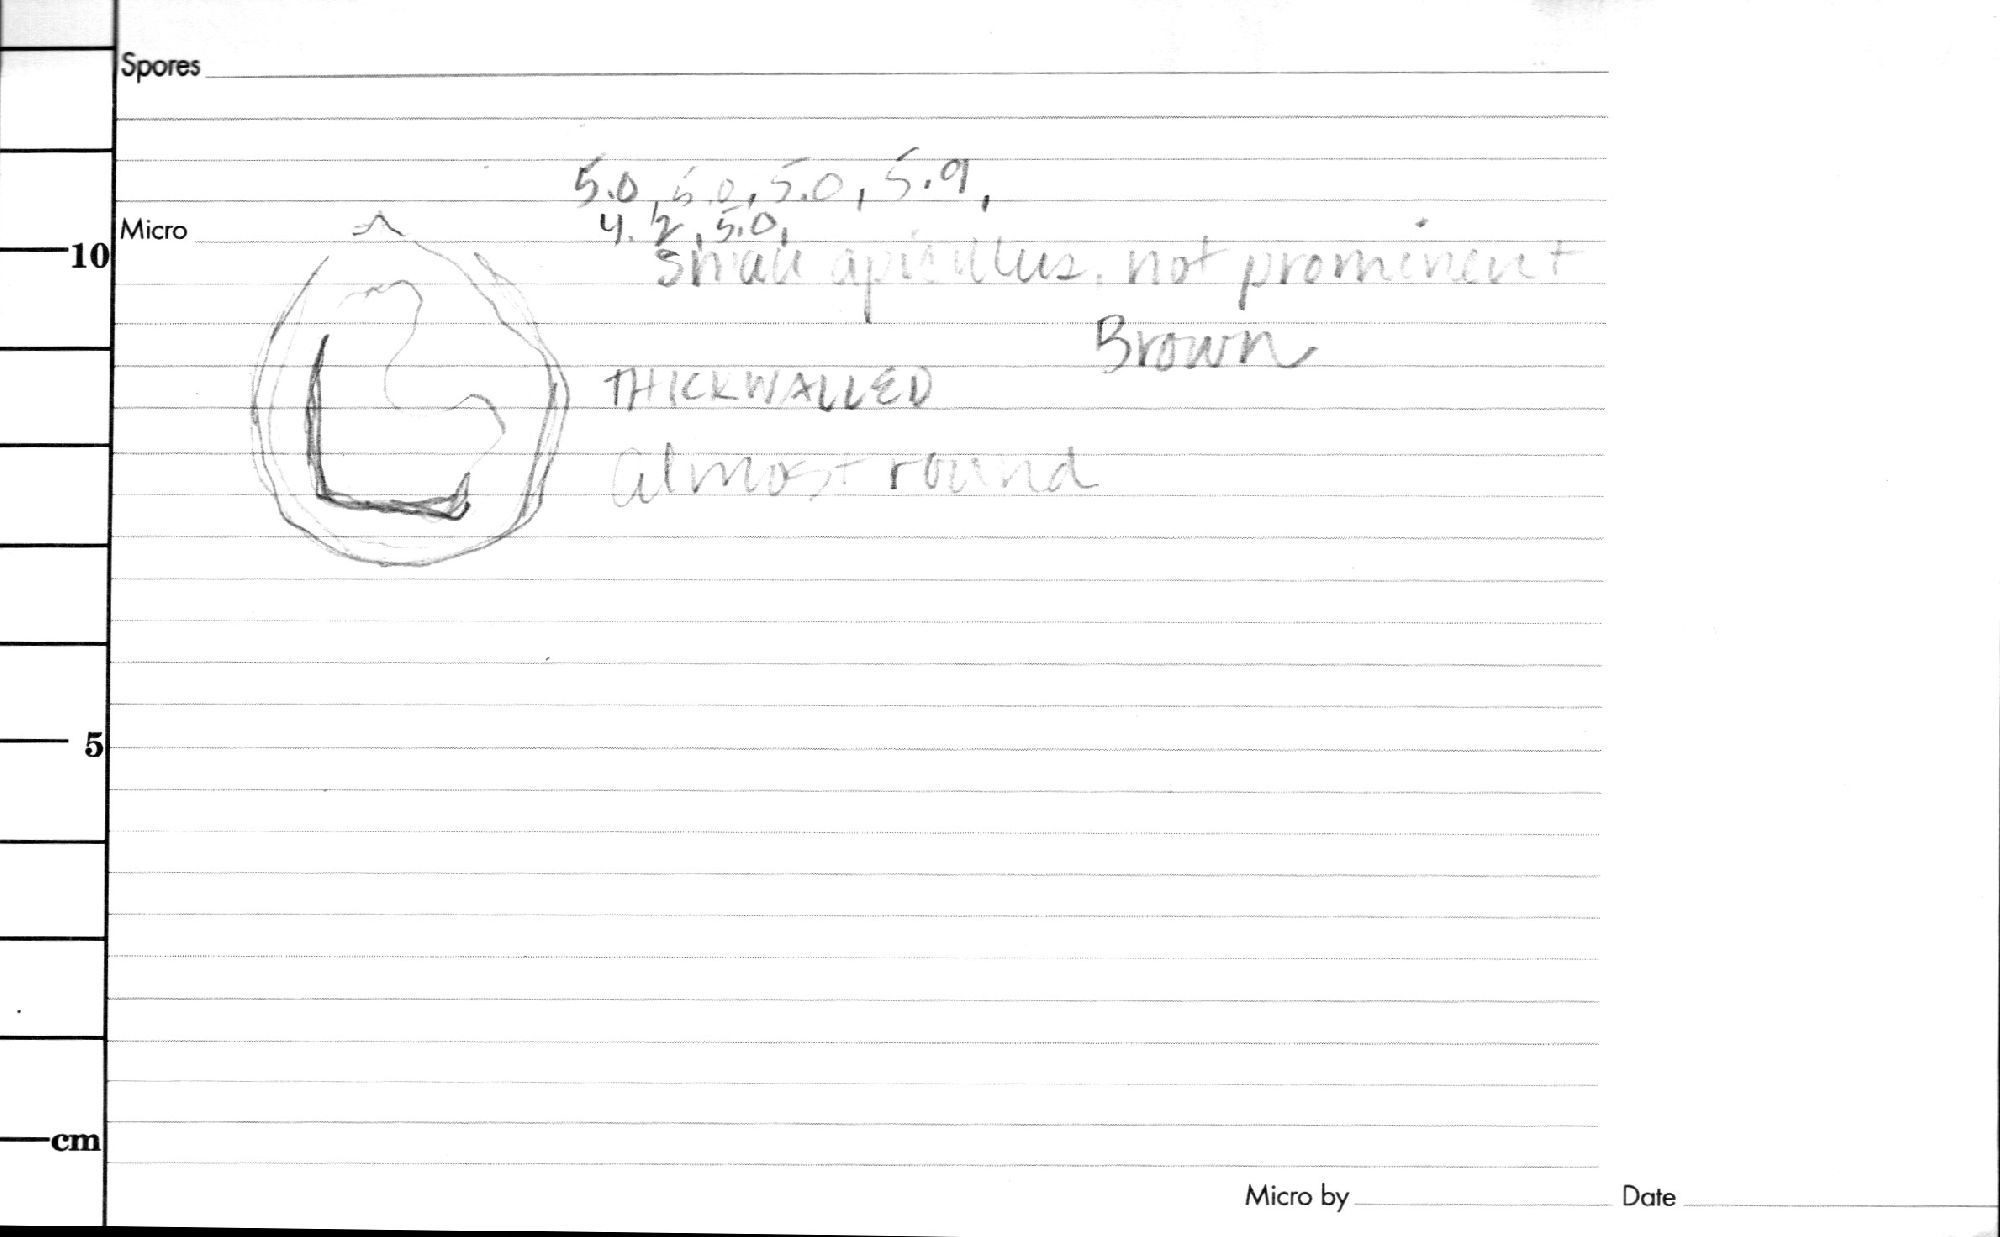 Spores
5.0, 5.0, 5.0, 5.9,
4.2, 5.0,
Micro
small apicullus, not prominent
Brown
THICKWALLED
almost round
10
5
cm
Micro by
Date